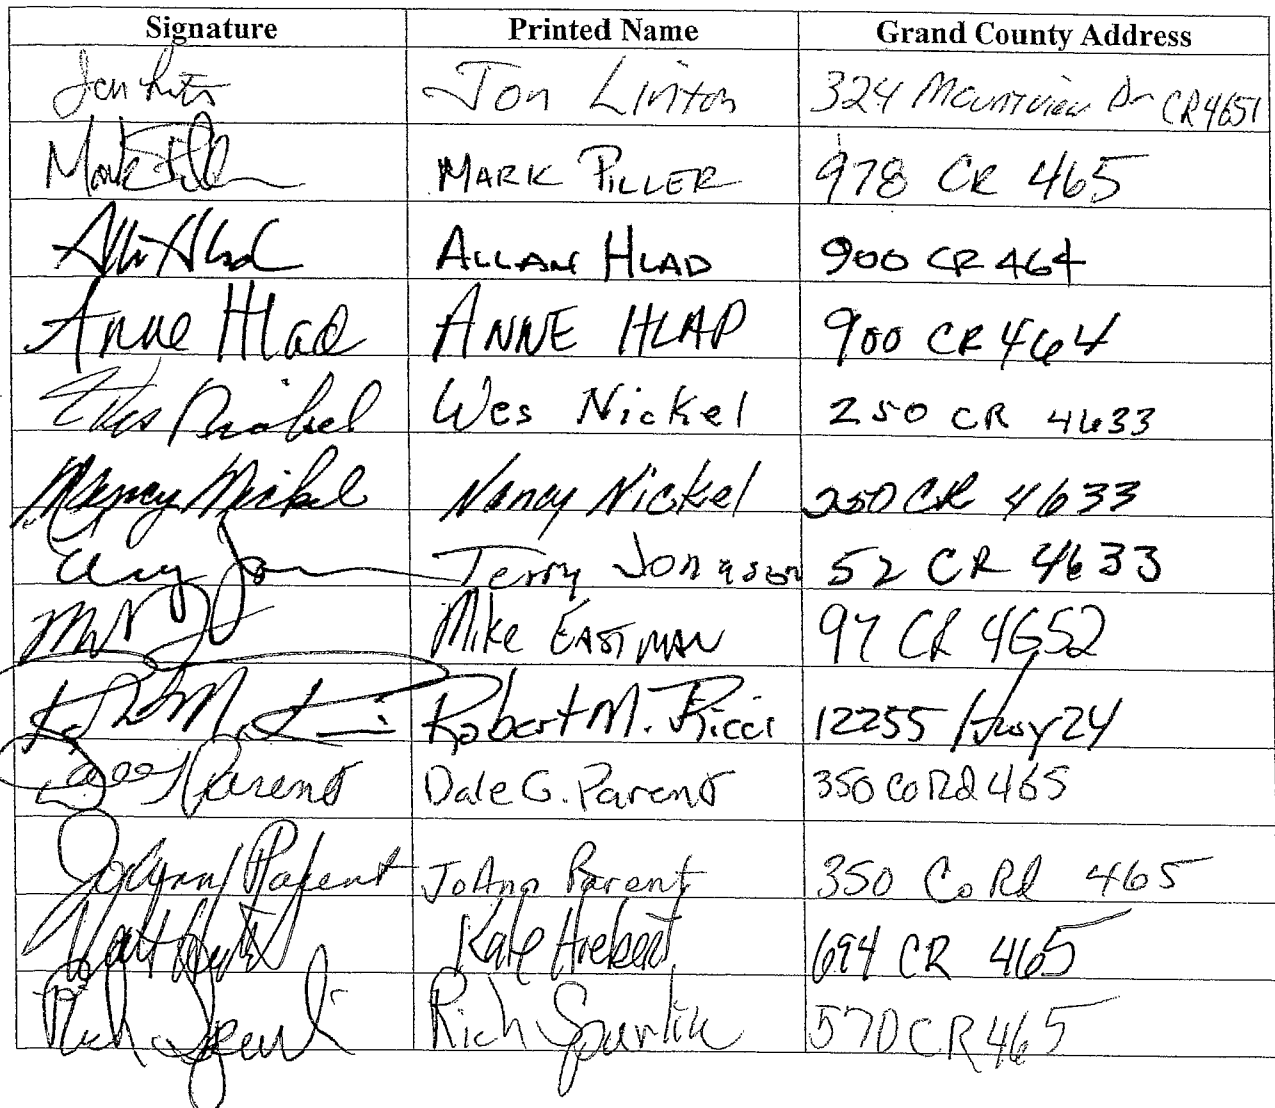 Signature Printed Name Grand County Address
Jon Linton 324 Mountview Dr CR4651
MARK PILLER 978 CR 465
ALLAN HLAD 900 CR 464
Anne Hlad ANNE HLAD 900 CR 464
Wes Nickel Wes Nickel 250 CR 4633
Nancy Nickel Nancy Nickel 250 CR 4633
Terry Jonason 52 CR 4633
Mike EASTMAN 97 CR 4652
Robert M. Ricci 12255 Hwy 24
Dale G. Parent 350 Co Rd 465
JoAnn Parent JoAnn Parent 350 Co Rd 465
Kate 694 CR 465
Rich Rich Spurlin 570 CR 465